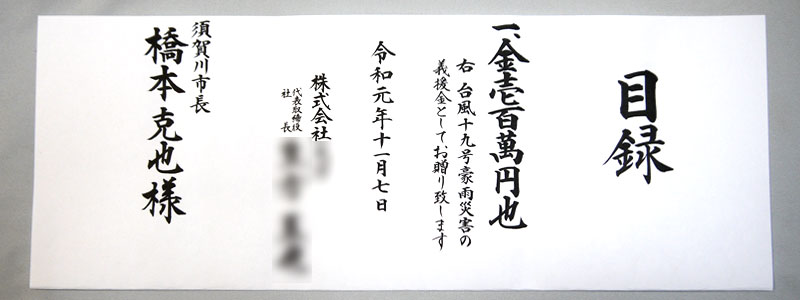 目録
一、金壱百萬円也
右 台風十九号豪雨災害の
義援金としてお贈り致します
令和元年十一月七日
株式会社
代表取締役
社長
須賀川市長
橋本克也様